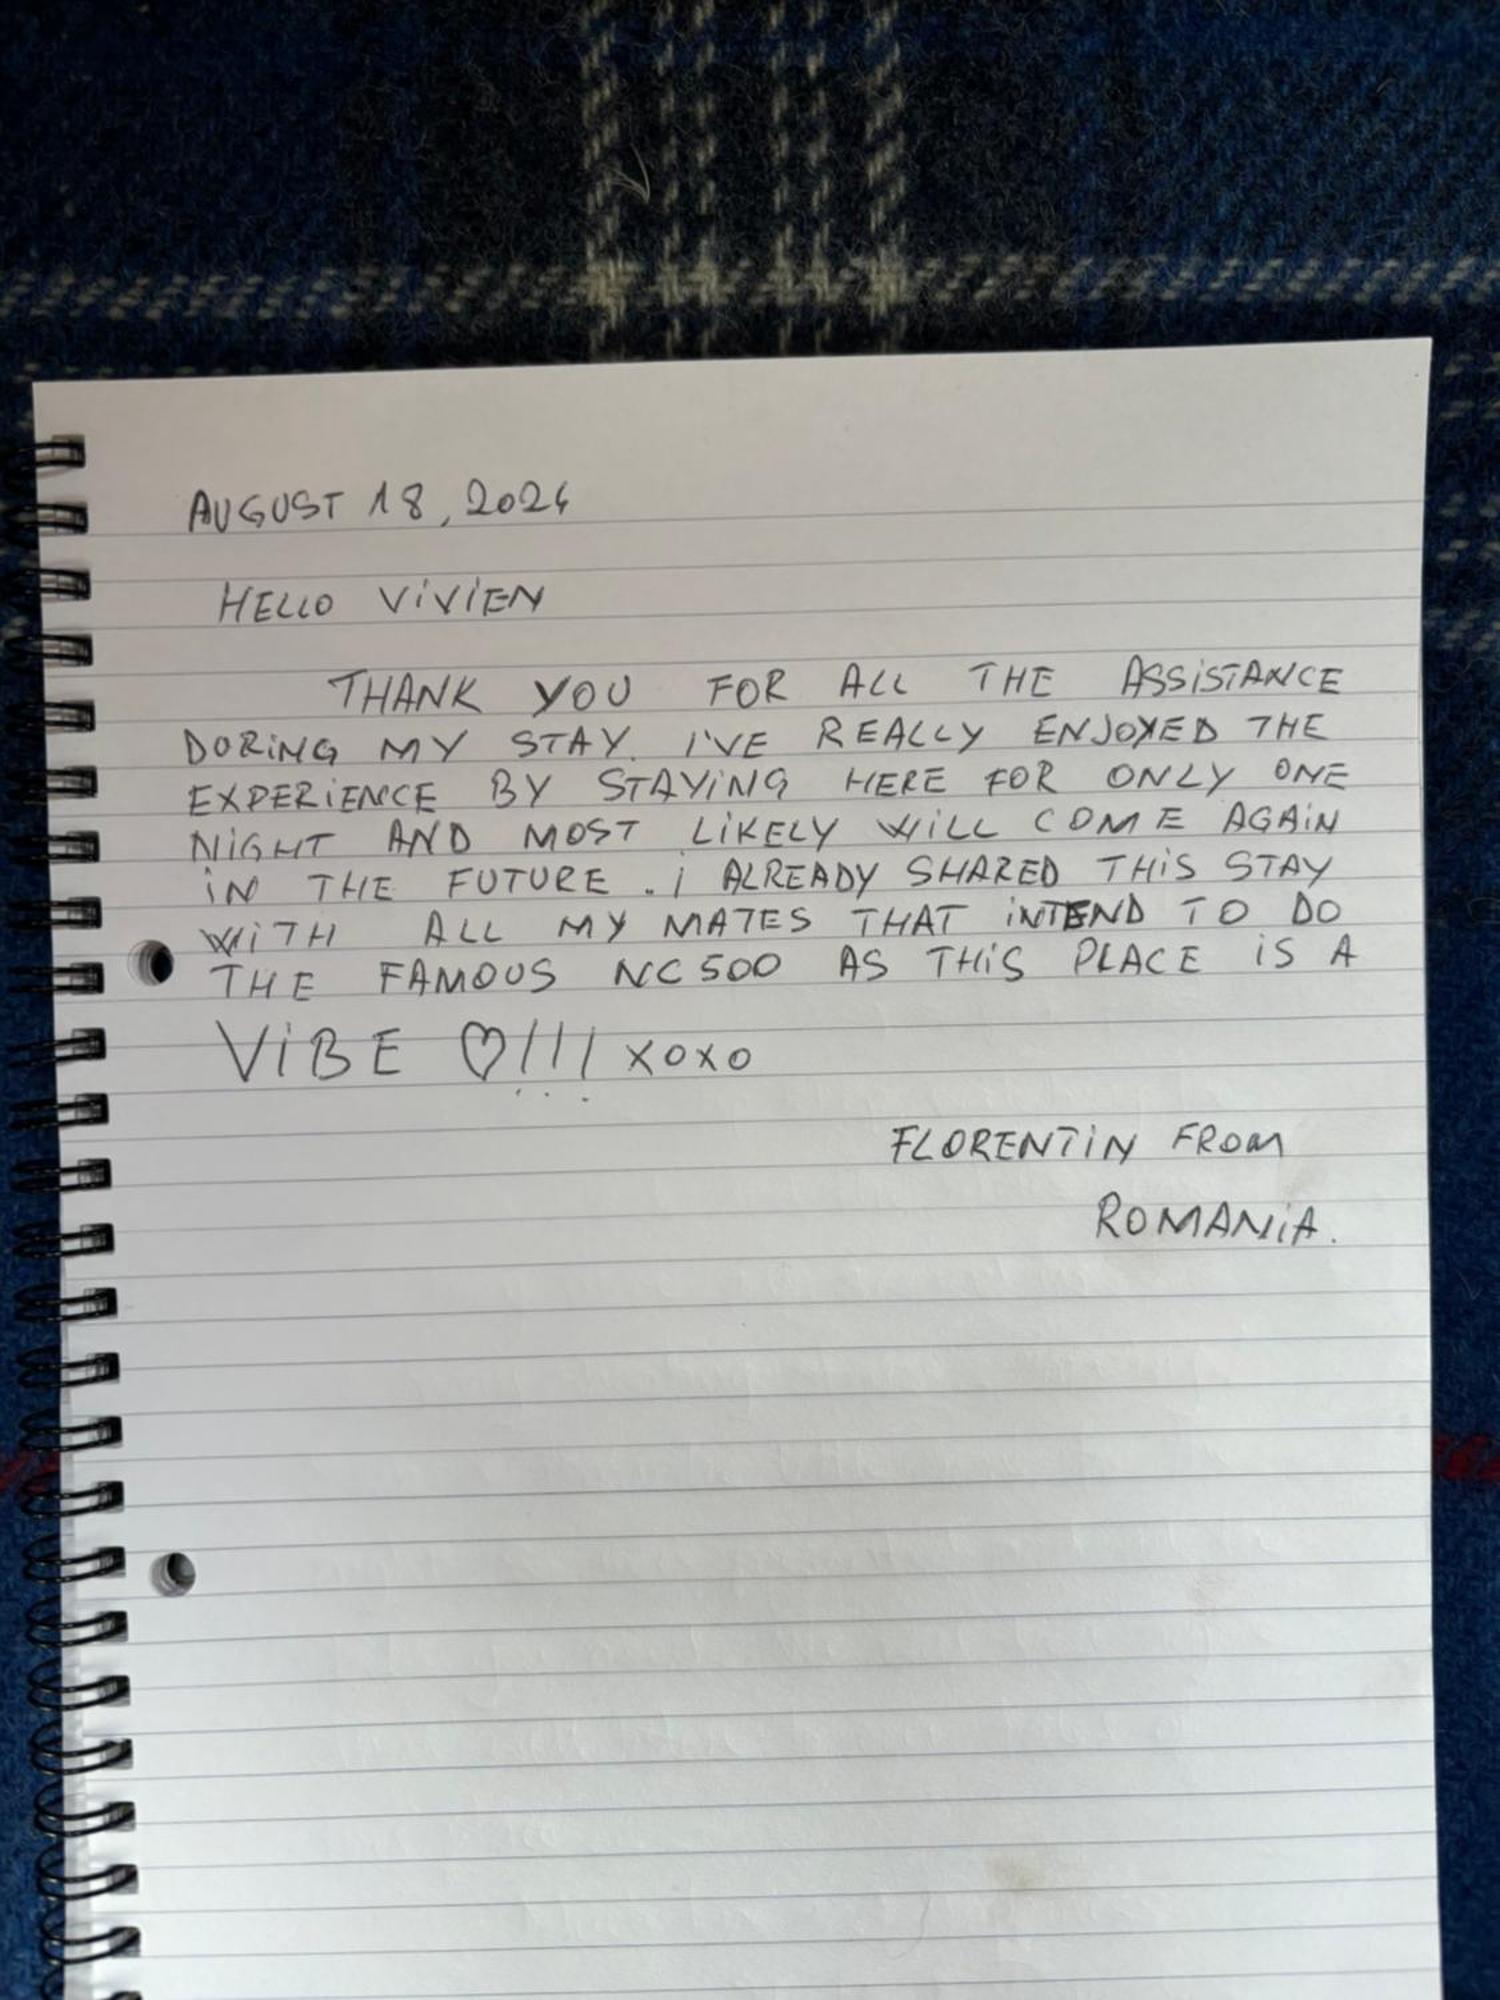 AUGUST 18, 2024
HELLO VIVIEN
THANK YOU FOR ALL THE ASSISTANCE
DORING MY STAY. I'VE REALLY ENJOYED THE
EXPERIENCE BY STAYING HERE FOR ONLY ONE
NIGHT AND MOST LIKELY WILL COME AGAIN
IN THE FUTURE. I ALREADY SHARED THIS STAY
WITH ALL MY MATES THAT INTEND TO DO
THE FAMOUS NC500 AS THIS PLACE IS A
VIBE ♡!!! XOXO
FLORENTIN FROM
ROMANIA.